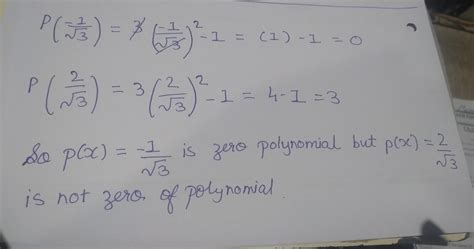 P(-1/√3) = 3(-1/√3)² - 1 = (1) - 1 = 0
P(2/√3) = 3(2/√3)² - 1 = 4 - 1 = 3
So p(x) = -1/√3 is zero polynomial but p(x) = 2/√3
is not zero of polynomial.